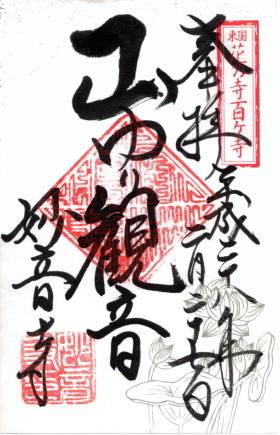 東国花の寺百ヶ寺
奉拝 平成二十八年
二月
山ゆり観音
妙音寺